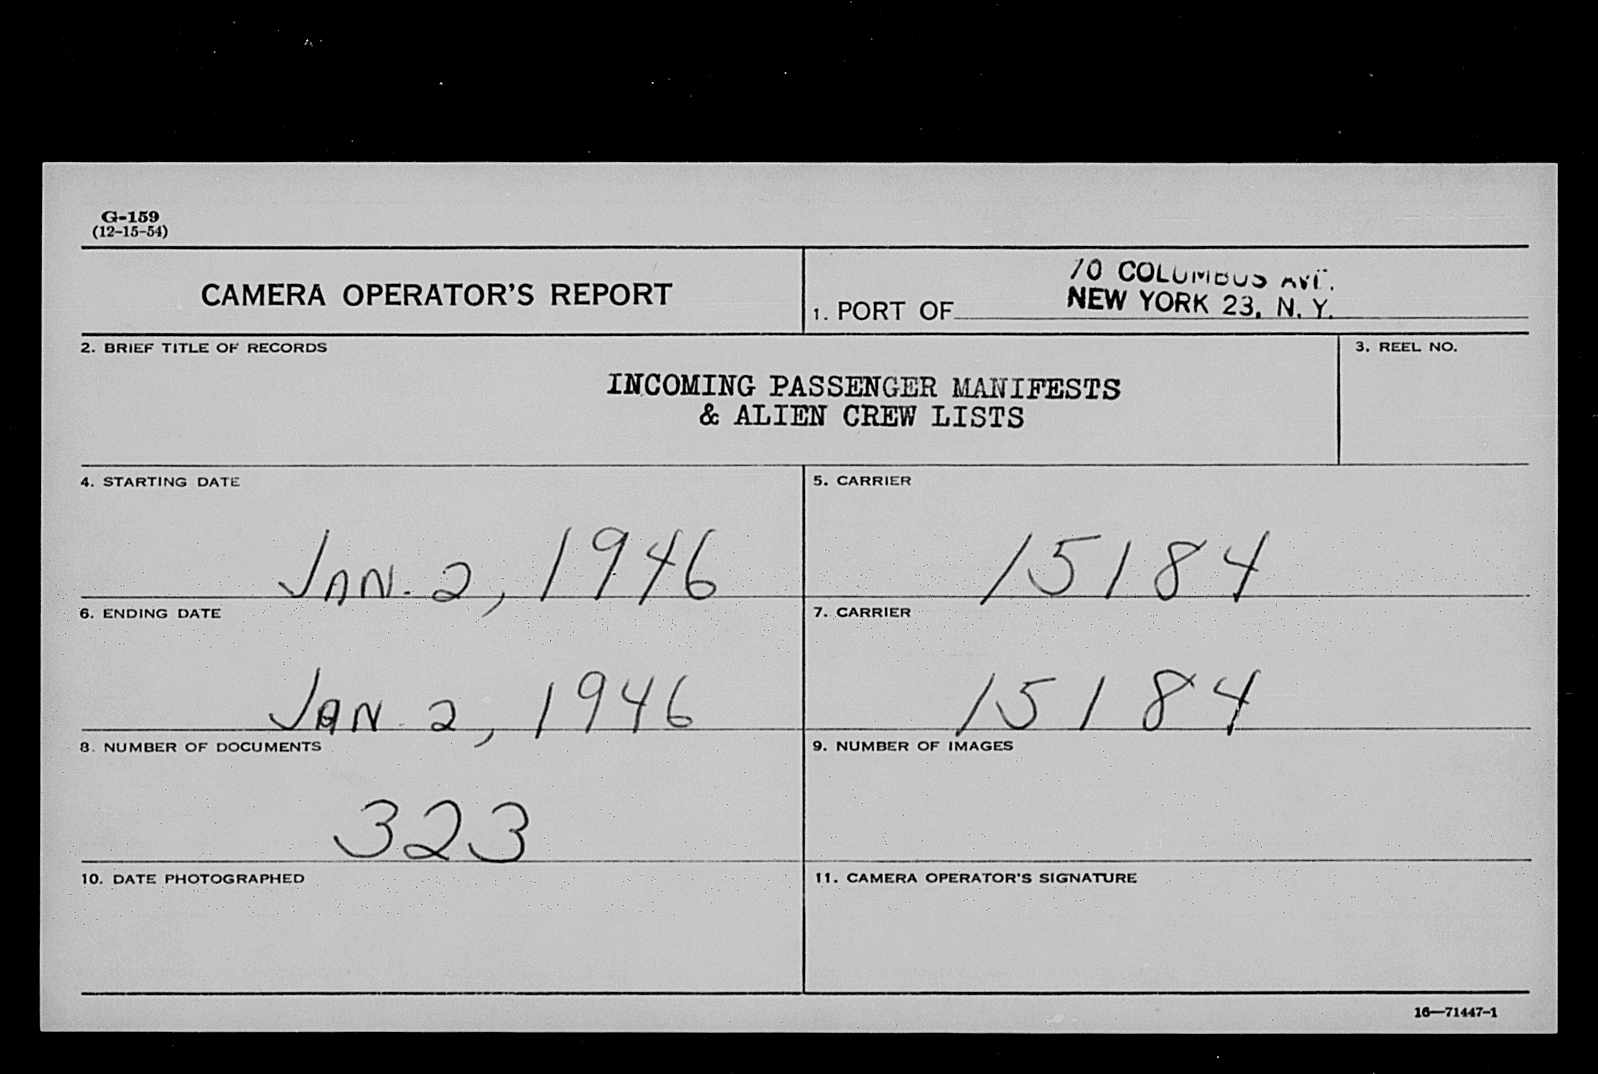 G-159
(12-15-54)
CAMERA OPERATOR'S REPORT
1. PORT OF
70 COLUMBUS AVE.
NEW YORK 23, N. Y.
2. BRIEF TITLE OF RECORDS
INCOMING PASSENGER MANIFESTS
& ALIEN CREW LISTS
3. REEL NO.
4. STARTING DATE
JAN. 2, 1946
5. CARRIER
15184
6. ENDING DATE
JAN 2, 1946
7. CARRIER
15184
8. NUMBER OF DOCUMENTS
323
9. NUMBER OF IMAGES
10. DATE PHOTOGRAPHED
11. CAMERA OPERATOR'S SIGNATURE
16—71447-1